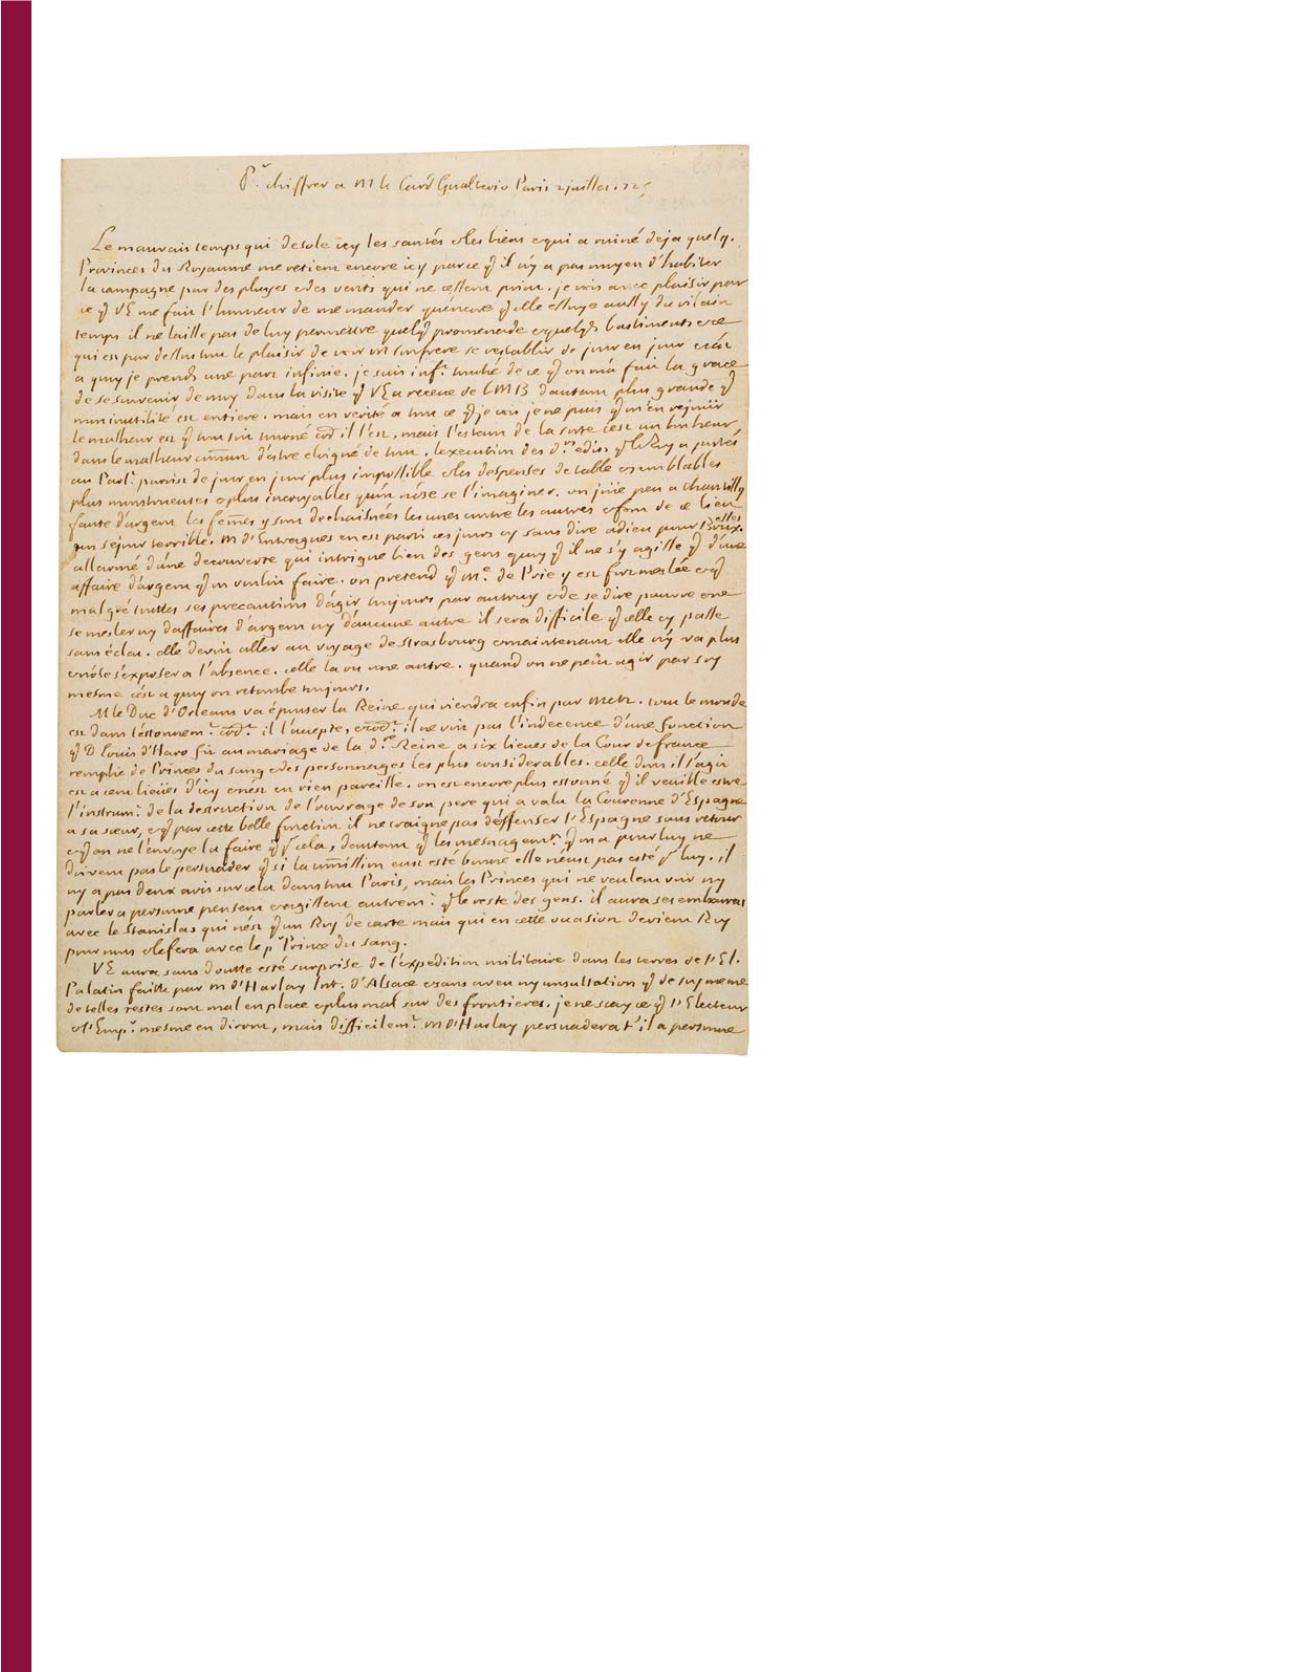 Pr. chiffrer a M le Card Gualterio Paris 2 juillet. 725
Le mauvais temps qui desole icy les santés et les biens et qui a ruiné deja quelq.
Provinces du Royaume me retient encore icy parce q il n'y a pas moyen d'habiter
la campagne par des pluyes et des vents qui ne cessent point. je vois avec plaisir pour
ce q VE me fait l'honneur de me mander qu'encore q elle essuye aussy du vilain
temps il ne laisse pas de luy permettre quelq promenade et quelqs bastiments et ce
qui est par dessus tout le plaisir de voir un confrere se restablir de jour en jour
a quoy je prends une part infinie. je suis inft. touché de ce q on m'a fait la grace
de se souvenir de moy dans la visite q VE a receue de LMB d'autant plus grande q
mon inutilité est entiere. mais en verité a tout ce q je vois je ne puis q m'en rejouir
le malheur est q tout soit tourné co͞e il l'est, mais l'estant de la sorte c'est un bonheur
dans le malheur co͞mun d'estre eloigné de tout. l'execution des d. edits q le Roy a portés
au Parlt. paroist de jour en jour plus impossible et les despenses de table et semblables
plus monstrueuses et plus incroyables qu'on n'ose se l'imaginer. on joüe peu a Chantilly
faute d'argent les fe͞mes y sont dechaisnées les unes contre les autres et font de ce lieu
un sejour terrible. M d'Entragues en est parti ces jours cy sans dire adieu pour Bruxelles
allarmé d'une decouverte qui intrigue bien des gens quoy q il ne s'y agisse q d'une
affaire d'argent q on vouloit faire. on pretend q Me. de Prie y est fort meslée et q
malgré touttes ses precautions d'agir toujours par autruy et de se dire pauvre et ne
se mesler ny d'affaires d'argent ny d'aucune autre il sera difficile q elle cy passe
sans éclat. elle devoit aller au voyage de Strasbourg et maintenant elle n'y va plus
et n'ose s'exposer a l'absence. celle la ou une autre. quand on ne peut agir par soy
mesme c'est a quoy on retombe toujours.
M le Duc d'Orleans va épouser la Reine qui viendra enfin par Metz. tout le monde
est dans l'estonnemt. co͞et. il l'accepte, et co͞et. il ne voit pas l'indecence d'une fonction
q D Louis d'Haro fit au mariage de la de. Reine a six lieues de la Cour de france
remplie de Princes du sang et des personnages les plus considerables. celle dont il s'agit
est a cent lieües d'icy et n'est en rien pareille. on est encore plus estonné q il veuille estre
l'instrumt. de la destruction de l'ouvrage de son pere qui a valu la Couronne d'Espagne
a sa sœur, et q par cette belle fonction il ne craigne pas d'offenser l'Espagne sans retour
et q on ne l'envoye la faire q pr. cela, d'autant q les mesnagemts. q on a pour luy ne
doivent pas le persuader q si la co͞mission eust esté bonne elle n'eust pas esté pr. luy. il
n'y a pas deux avis sur cela dans tout Paris, mais les Princes qui ne veulent voir ny
parler a personne pensent et agissent autremt. q le reste des gens. il aura ses embarras
avec le Stanislas qui n'est q un Roy de carte mais qui en cette occasion devient Roy
pour nous et le fera avec le pr. Prince du sang.
VE aura sans doutte esté surprise de l'expedition militaire dans les terres de l'El.
Palatin faitte par M d'Harlay Int. d'Alsace et sans aveu ny consultation q de soy meme
de telles testes sont mal en place et plus mal sur des frontieres. je ne scay ce q l'Electeur
et l'Empr. mesme en diront, mais difficilemt. M d'Harlay persuadera t'il a personne